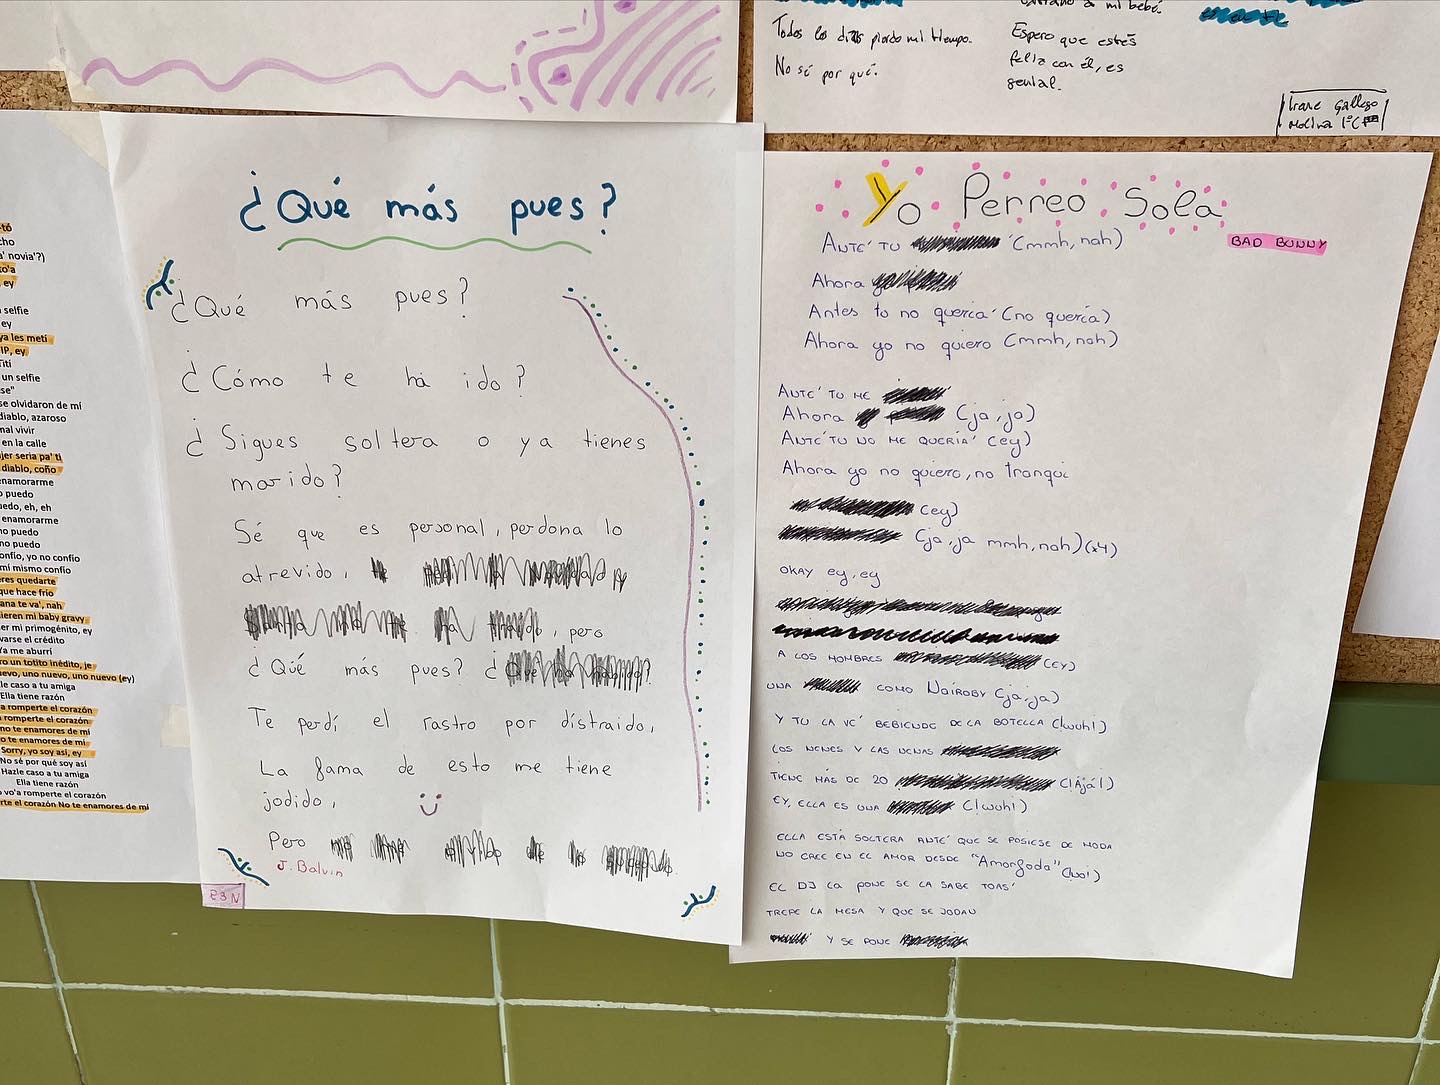 Todos los días pierdo mi tiempo.
No sé por qué.
a mi bebé.
Espero que estés
feliz con él, es
genial.
Irene Gallego
Molina 1ºC
tó
cho
a' novia'?)
to'a
, ey
selfie
ey
ya les metí
IP, ey
Tití
un selfie
se"
se olvidaron de mí
diablo, azaroso
mal vivir
en la calle
jer seria pa' ti
diablo, coño
enamorarme
o puedo
uedo, eh, eh
enamorarme
no puedo
no puedo
onfío, yo no confío
mí mismo confío
eres quedarte
que hace frío
ana te va', nah
sieren mi baby gravy
er mi primogénito, ey
varse el crédito
Ya me aburrí
ro un totito inédito, je
uevo, uno nuevo, uno nuevo (ey)
le caso a tu amiga
Ella tiene razón
a romperte el corazón
a romperte el corazón
no te enamores de mí
o te enamores de mí
Sorry, yo soy así, ey
No sé por qué soy así
Hazle caso a tu amiga
Ella tiene razón
o vo'a romperte el corazón
rte el corazón No te enamores de mí
¿Qué más pues?
¿Qué más pues?
¿Cómo te ha ido?
¿Sigues soltera o ya tienes
marido?
Sé que es personal, perdona lo
atrevido,
, pero
¿Qué más pues? ¿
Te perdí el rastro por distraido,
La fama de esto me tiene
jodido,
Pero
J. Balvin
E3N
Yo Perreo Sola
BAD BUNNY
ANTE' TU (mmh, nah)
Ahora
Antes tu no quería' (no quería)
Ahora yo no quiero (mmh, nah)
ANTE' TU ME
Ahora (ja, ja)
ANTE' TU NO ME QUERÍA' (ey)
Ahora yo no quiero, no tranqui
(ey)
(ja, ja mmh, nah) (x4)
OKAY ey, ey
A LOS HOMBRES (EY)
UNA COMO NAIROBY (ja, ja)
Y TU LA VE' BEBIENDO DE LA BOTELLA (¡wuh!)
LOS NENES Y LAS NENAS
TIENE MÁS DE 20 (¡Ajá!)
EY, ELLA ES UNA (¡wuh!)
ELLA ESTÁ SOLTERA ANTE' QUE SE PUSIESE DE MODA
NO CREE EN EL AMOR DESDE "Amorfoda"
EL DJ LA PONE SE LA SABE TOAS'
TREPE LA MESA Y QUE SE JODAN
Y SE PONE